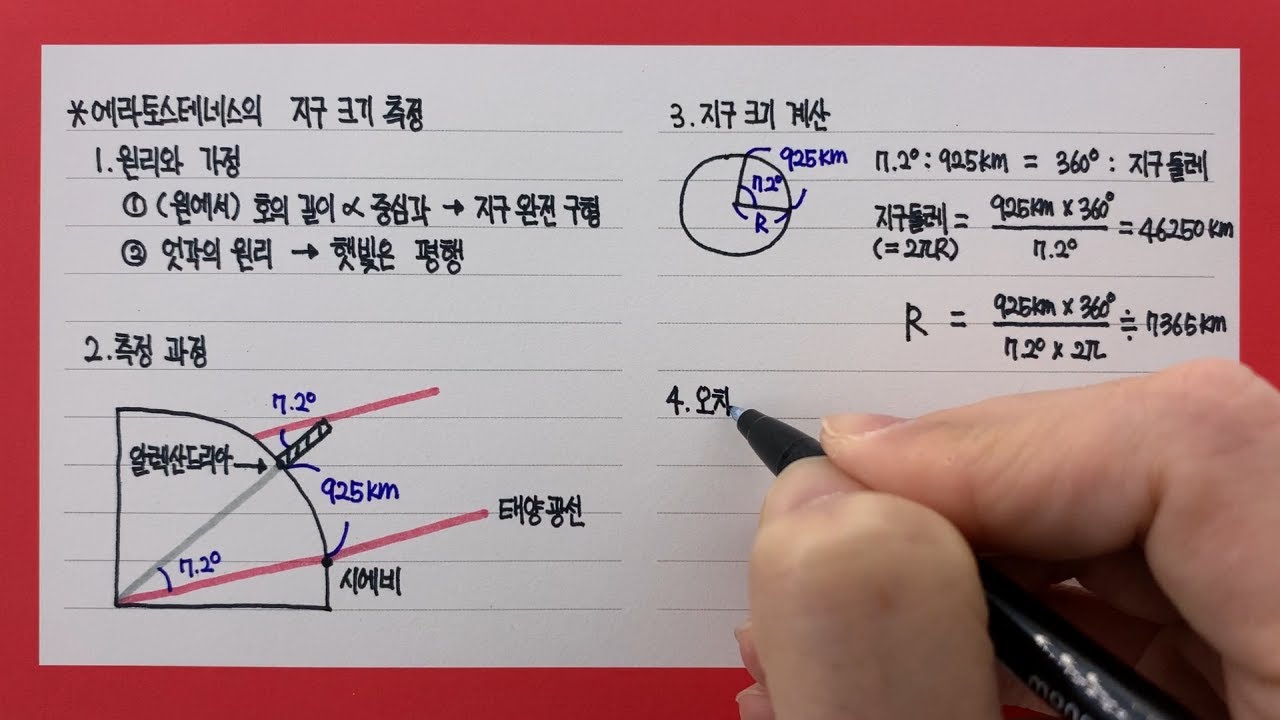 *에라토스테네스의 지구 크기 측정
1. 원리와 가정
① (원에서) 호의 길이 ∝ 중심각 → 지구 완전 구형
② 엇각의 원리 → 햇빛은 평행
2. 측정 과정
7.2°
알렉산드리아→
925km
태양광선
7.2°
시에네
3. 지구 크기 계산
925km
7.2°
R
7.2° : 925km = 360° : 지구둘레
지구둘레 = 925km × 360° / 7.2° = 46250km
(=2πR)
R = 925km × 360° / 7.2° × 2π ≑ 7365km
4. 오차
mono